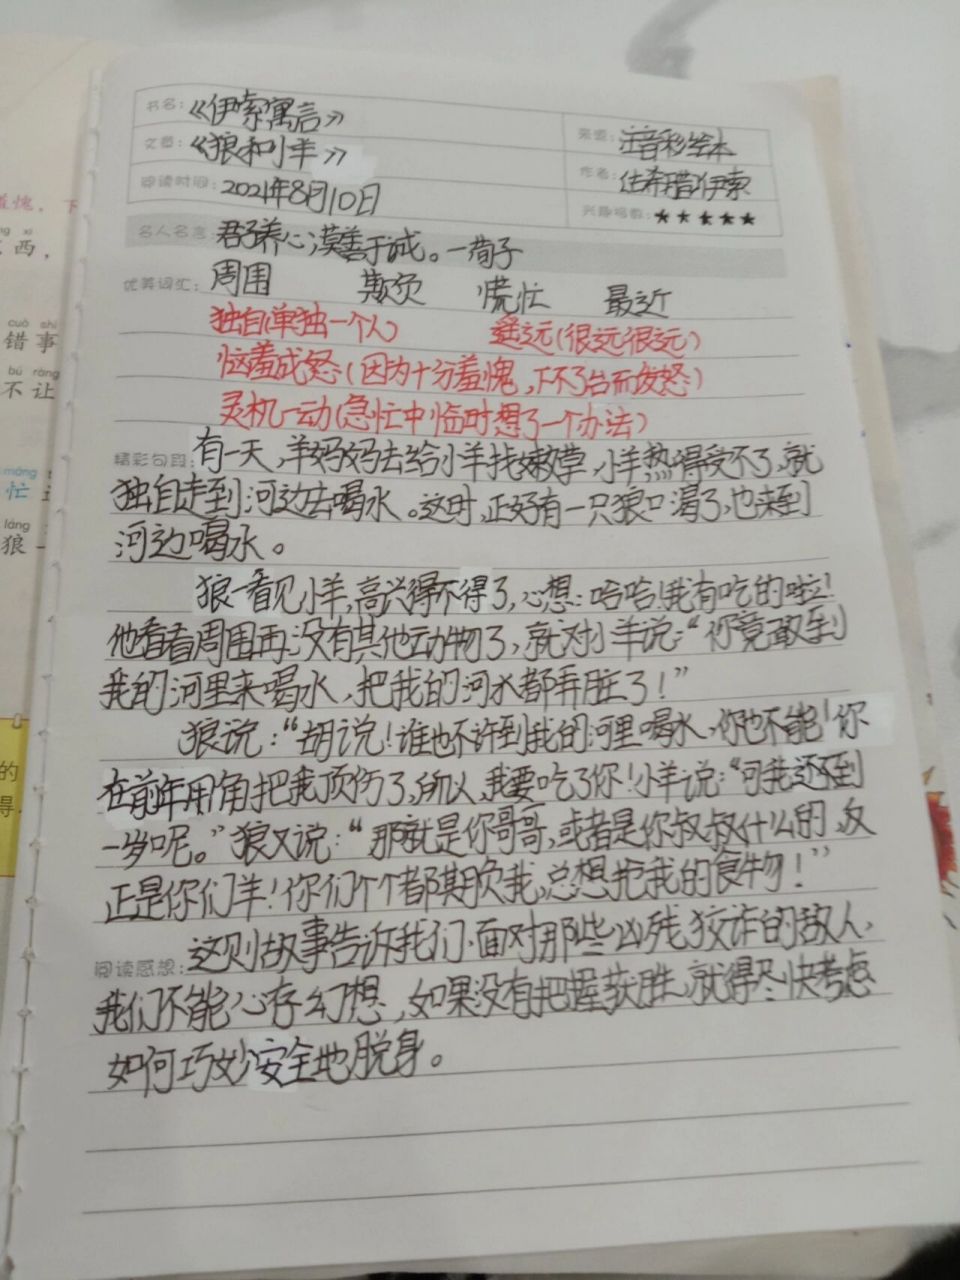 书名：《伊索寓言》
来源：注音彩绘本
文章：《狼和小羊》
作者：(古希腊)伊索
阅读时间：2021年8月10日
兴趣指数：★★★★★
名人名言：君子养心漠善于诚。—荀子
优美词汇：周围 欺负 慌忙 最近
独自(单独一个人) 遥远(很远很远)
恼羞成怒：(因为十分羞愧，下不了台而发怒)
灵机一动(急忙中临时想了一个办法)
精彩句段：有一天，羊妈妈去给小羊找嫩草，小羊热得受不了，就
独自走到河边去喝水。这时，正好有一只狼口渴了，也来到
河边喝水。
狼一看见小羊，高兴得不得了，心想：哈哈！我有吃的啦！
他看看周围再没有其他动物了，就对小羊说：“你竟敢到
我的河里来喝水，把我的河水都弄脏了！”
狼说：“胡说！谁也不许到我的河里喝水，你也不能！你
在前年用角把我顶伤了，所以，我要吃了你！小羊说：“可我还不到
一岁呢。”狼又说：“那就是你哥哥，或者是你叔叔什么的，反
正是你们羊！你们个个都欺负我，总想抢我的食物！”
阅读感想：这则故事告诉我们，面对那些凶残狡诈的敌人，
我们不能心存幻想，如果没有把握获胜，就得尽快考虑
如何巧妙安全地脱身。
愧，下
西，
cuò shì
错事
bú ràng
不让
máng
忙
láng
狼
的
得